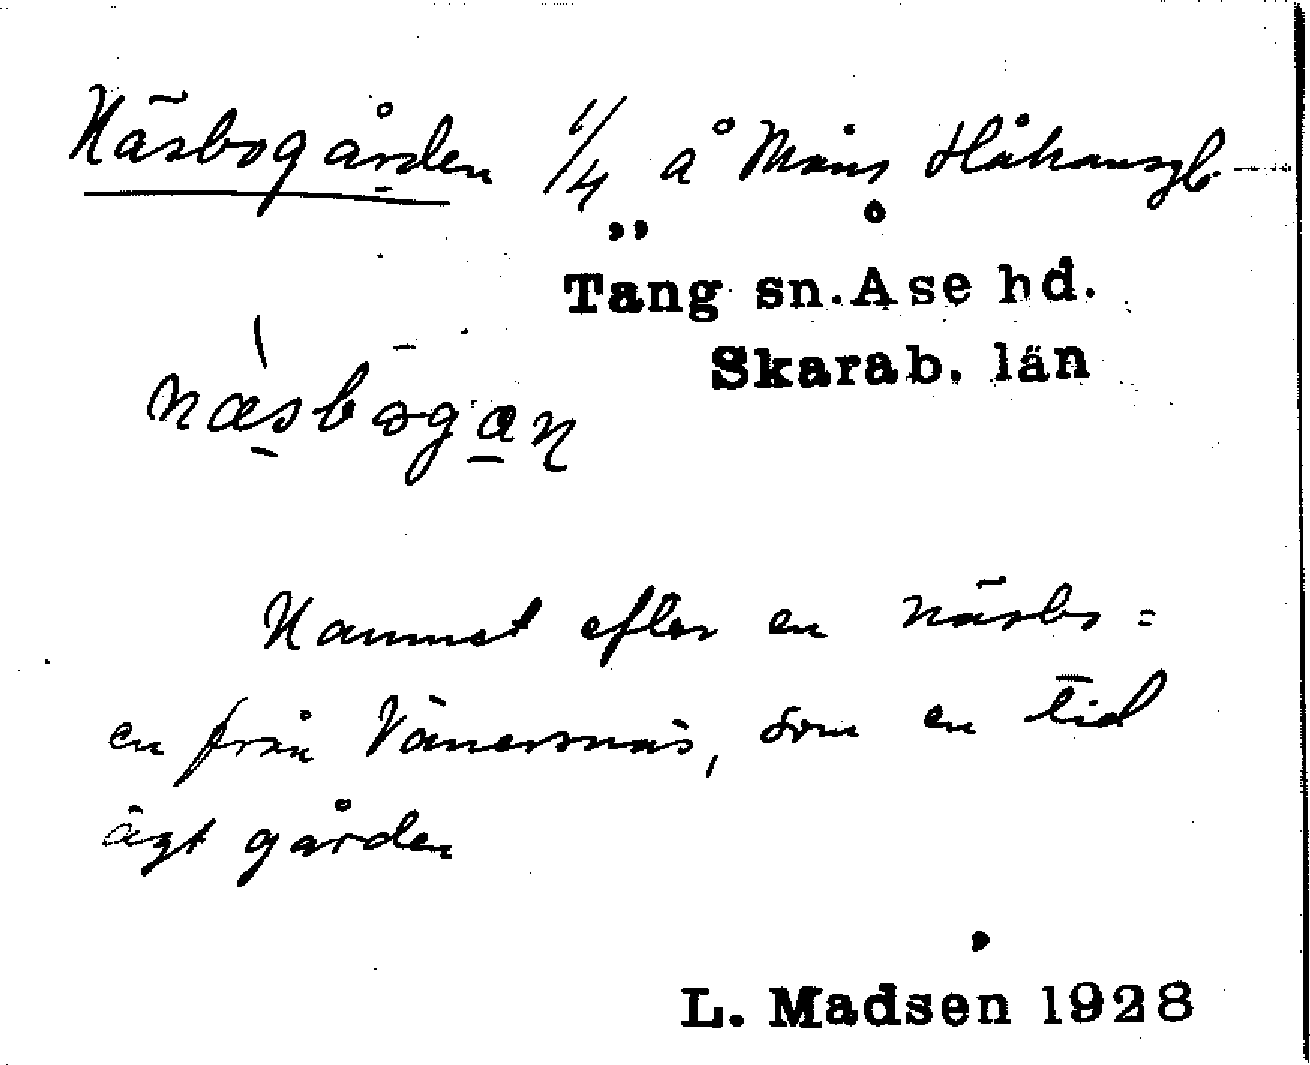 Näsbogården 1/4 å Måns Håkansgb.
Täng sn. Åse hd.
Skarab. län
näsbogan
Namnet efter en näsbo=
en från Vänersnäs, som en tid
ägt gården
L. Madsen 1928